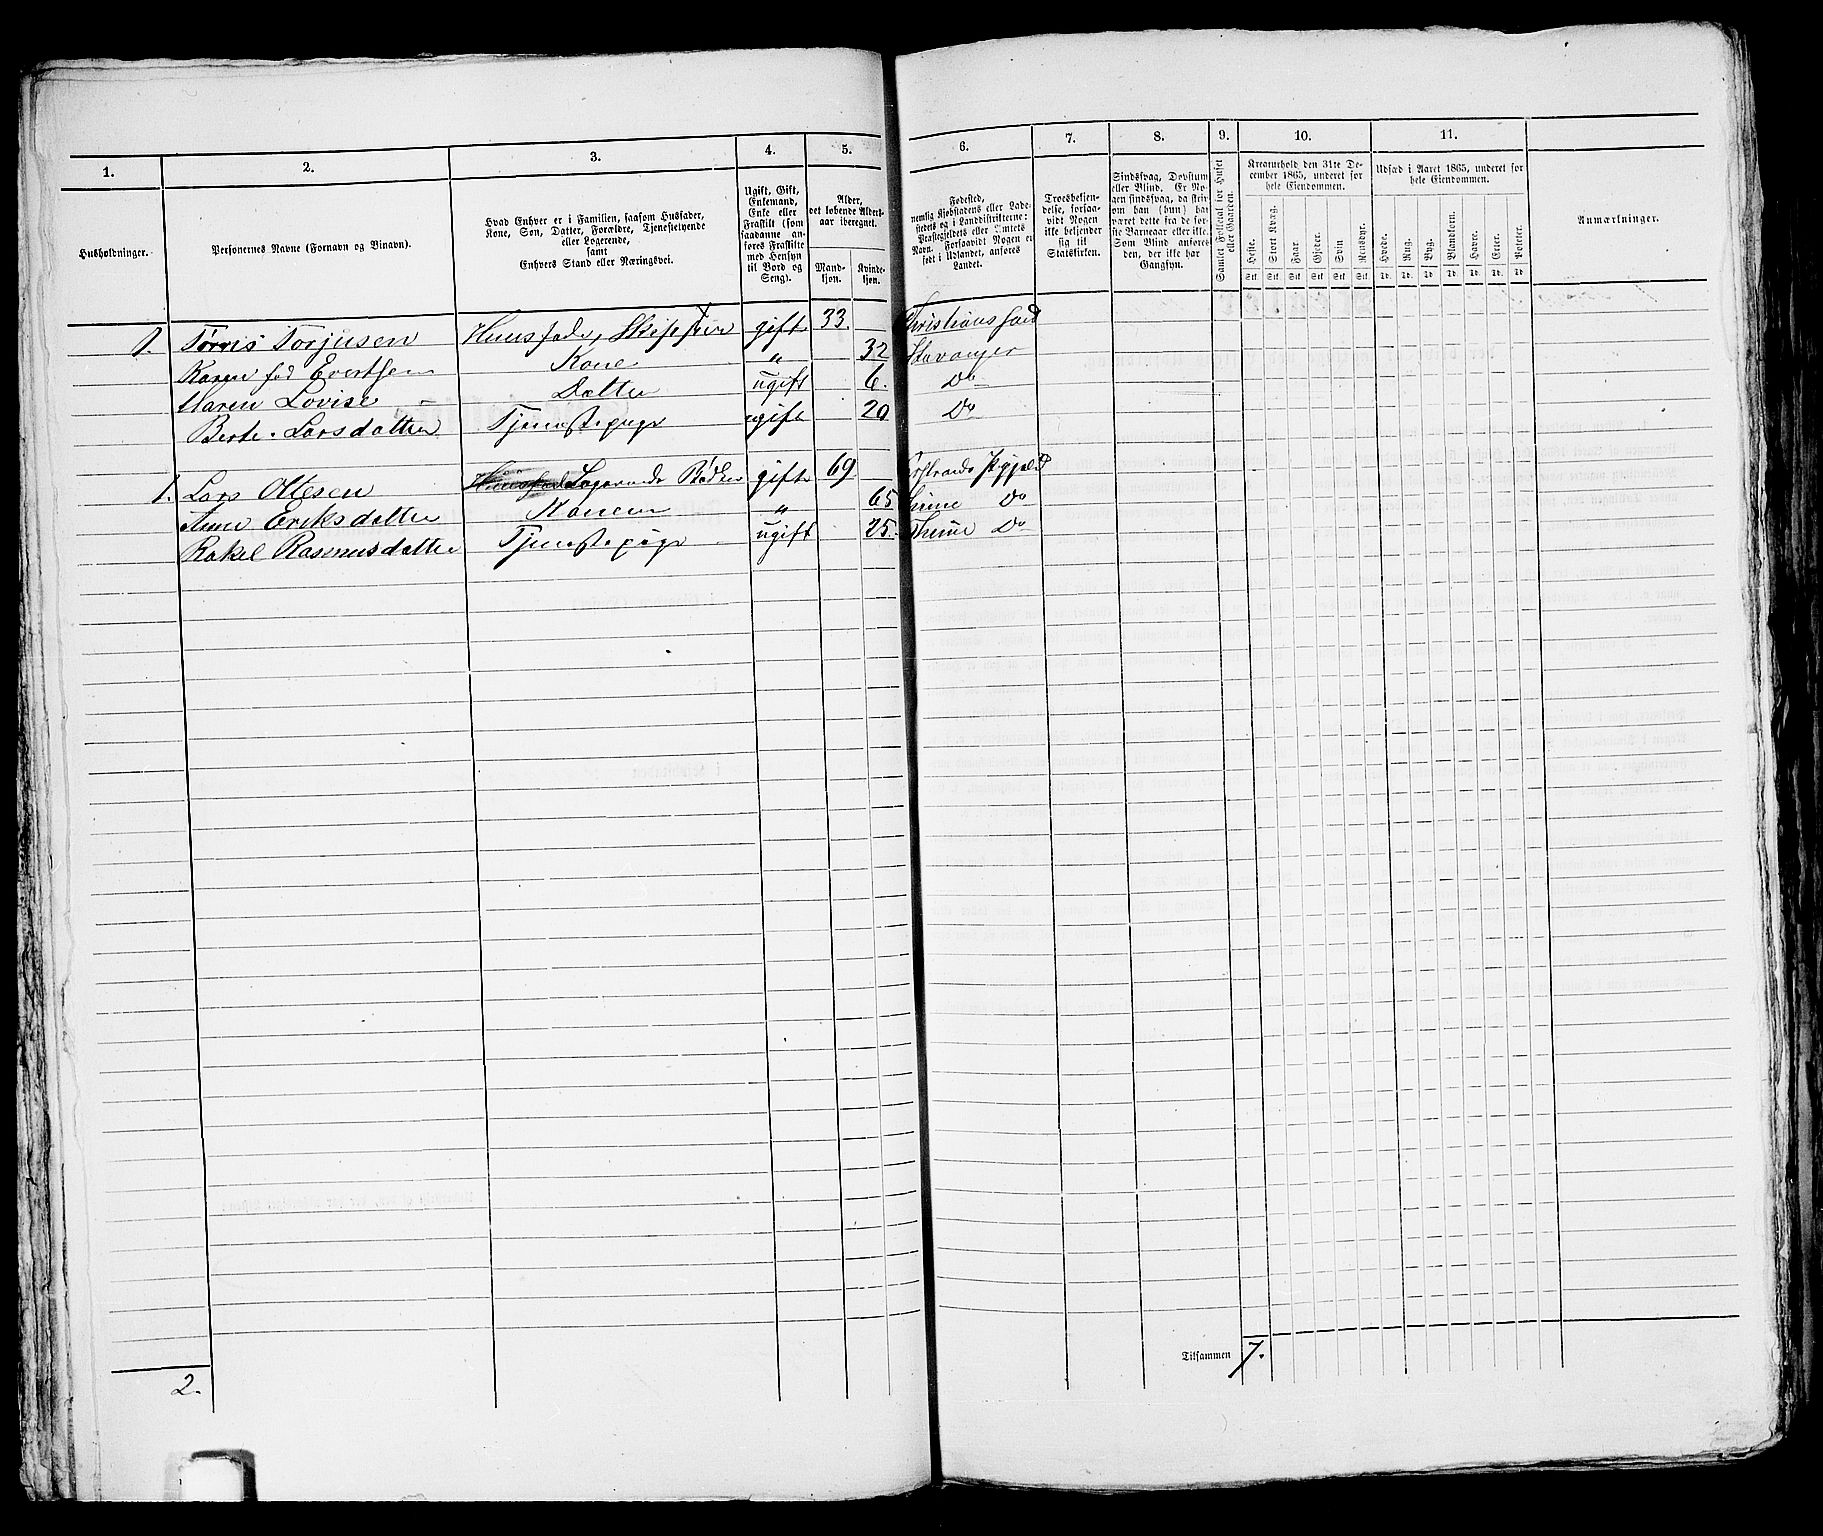 1. 2. 3. 4. 5. 6. 7. 8. 9. 10. 11.
Husholdninger.
Personernes Navne (Fornavn og Binavn).
Hvad Enhver er i Familien, saasom Husfader,
Kone, Søn, Datter, Forældre, Tjenestetyende
eller Logerende,
samt
Enhvers Stand eller Næringsvei.
Ugift, Gift,
Enkemand,
Enke eller
Fraskilt (som
saadanne an-
føres Fraskilte
med Hensyn
til Bord og
Seng).
Alder,
det løbende Alders-
aar iberegnet.
Mand-
kjøn.
Kvinde-
kjøn.
Fødested,
nemlig Kjøbstadens eller Lade-
stedets og i Landdistrikterne:
Præstegjeldets eller Amtets
Navn. Forsaavidt Nogen er
født i Udlandet, anføres
Landet.
Troesbekjen-
delse, forsaa-
vidt Nogen
ikke bekjender
sig til
Statskirken.
Sindssvag, Døvstum
eller Blind. Er No-
gen sindssvag, da skriv
om han (hun) har
været dette fra de før-
ste Barneaar eller ikke.
Som Blind anføres
den, der ikke har
Gangsyn.
Samlet Folketal for Huset
eller Gaarden.
Kreaturhold den 31te De-
cember 1865, underet for
hele Eiendommen.
Heste. Stort Kvæg. Faar. Gjeder. Svin Rensdyr.
Stk. Stk. Stk. Stk. Stk. Stk.
Udsæd i Aaret 1865, underet for
hele Eiendommen.
Hvede. Rug. Byg. Blandkorn. Havre. Erter. Poteter.
Td. Td. Td. Td. Td. Td. Td.
Anmærkninger.
1. Tørris Torjusen Huusfader, Skipper gift 33. Christianssand
Karen fød Evertsen Kone " 32 Stavanger
Maren Lovise Datter ugift 6. Do
Berte Larsdatter Tjenestepige ugift 20 Do
1. Lars Ottesen Huusfad Logerende Rødker gift 69 Prgjeld
Anne Eriksdatter Konen " 65 Do
Rakel Rasmusdatter Tjenestepige ugift 25. Thime Do
2.
Tilsammen 7.